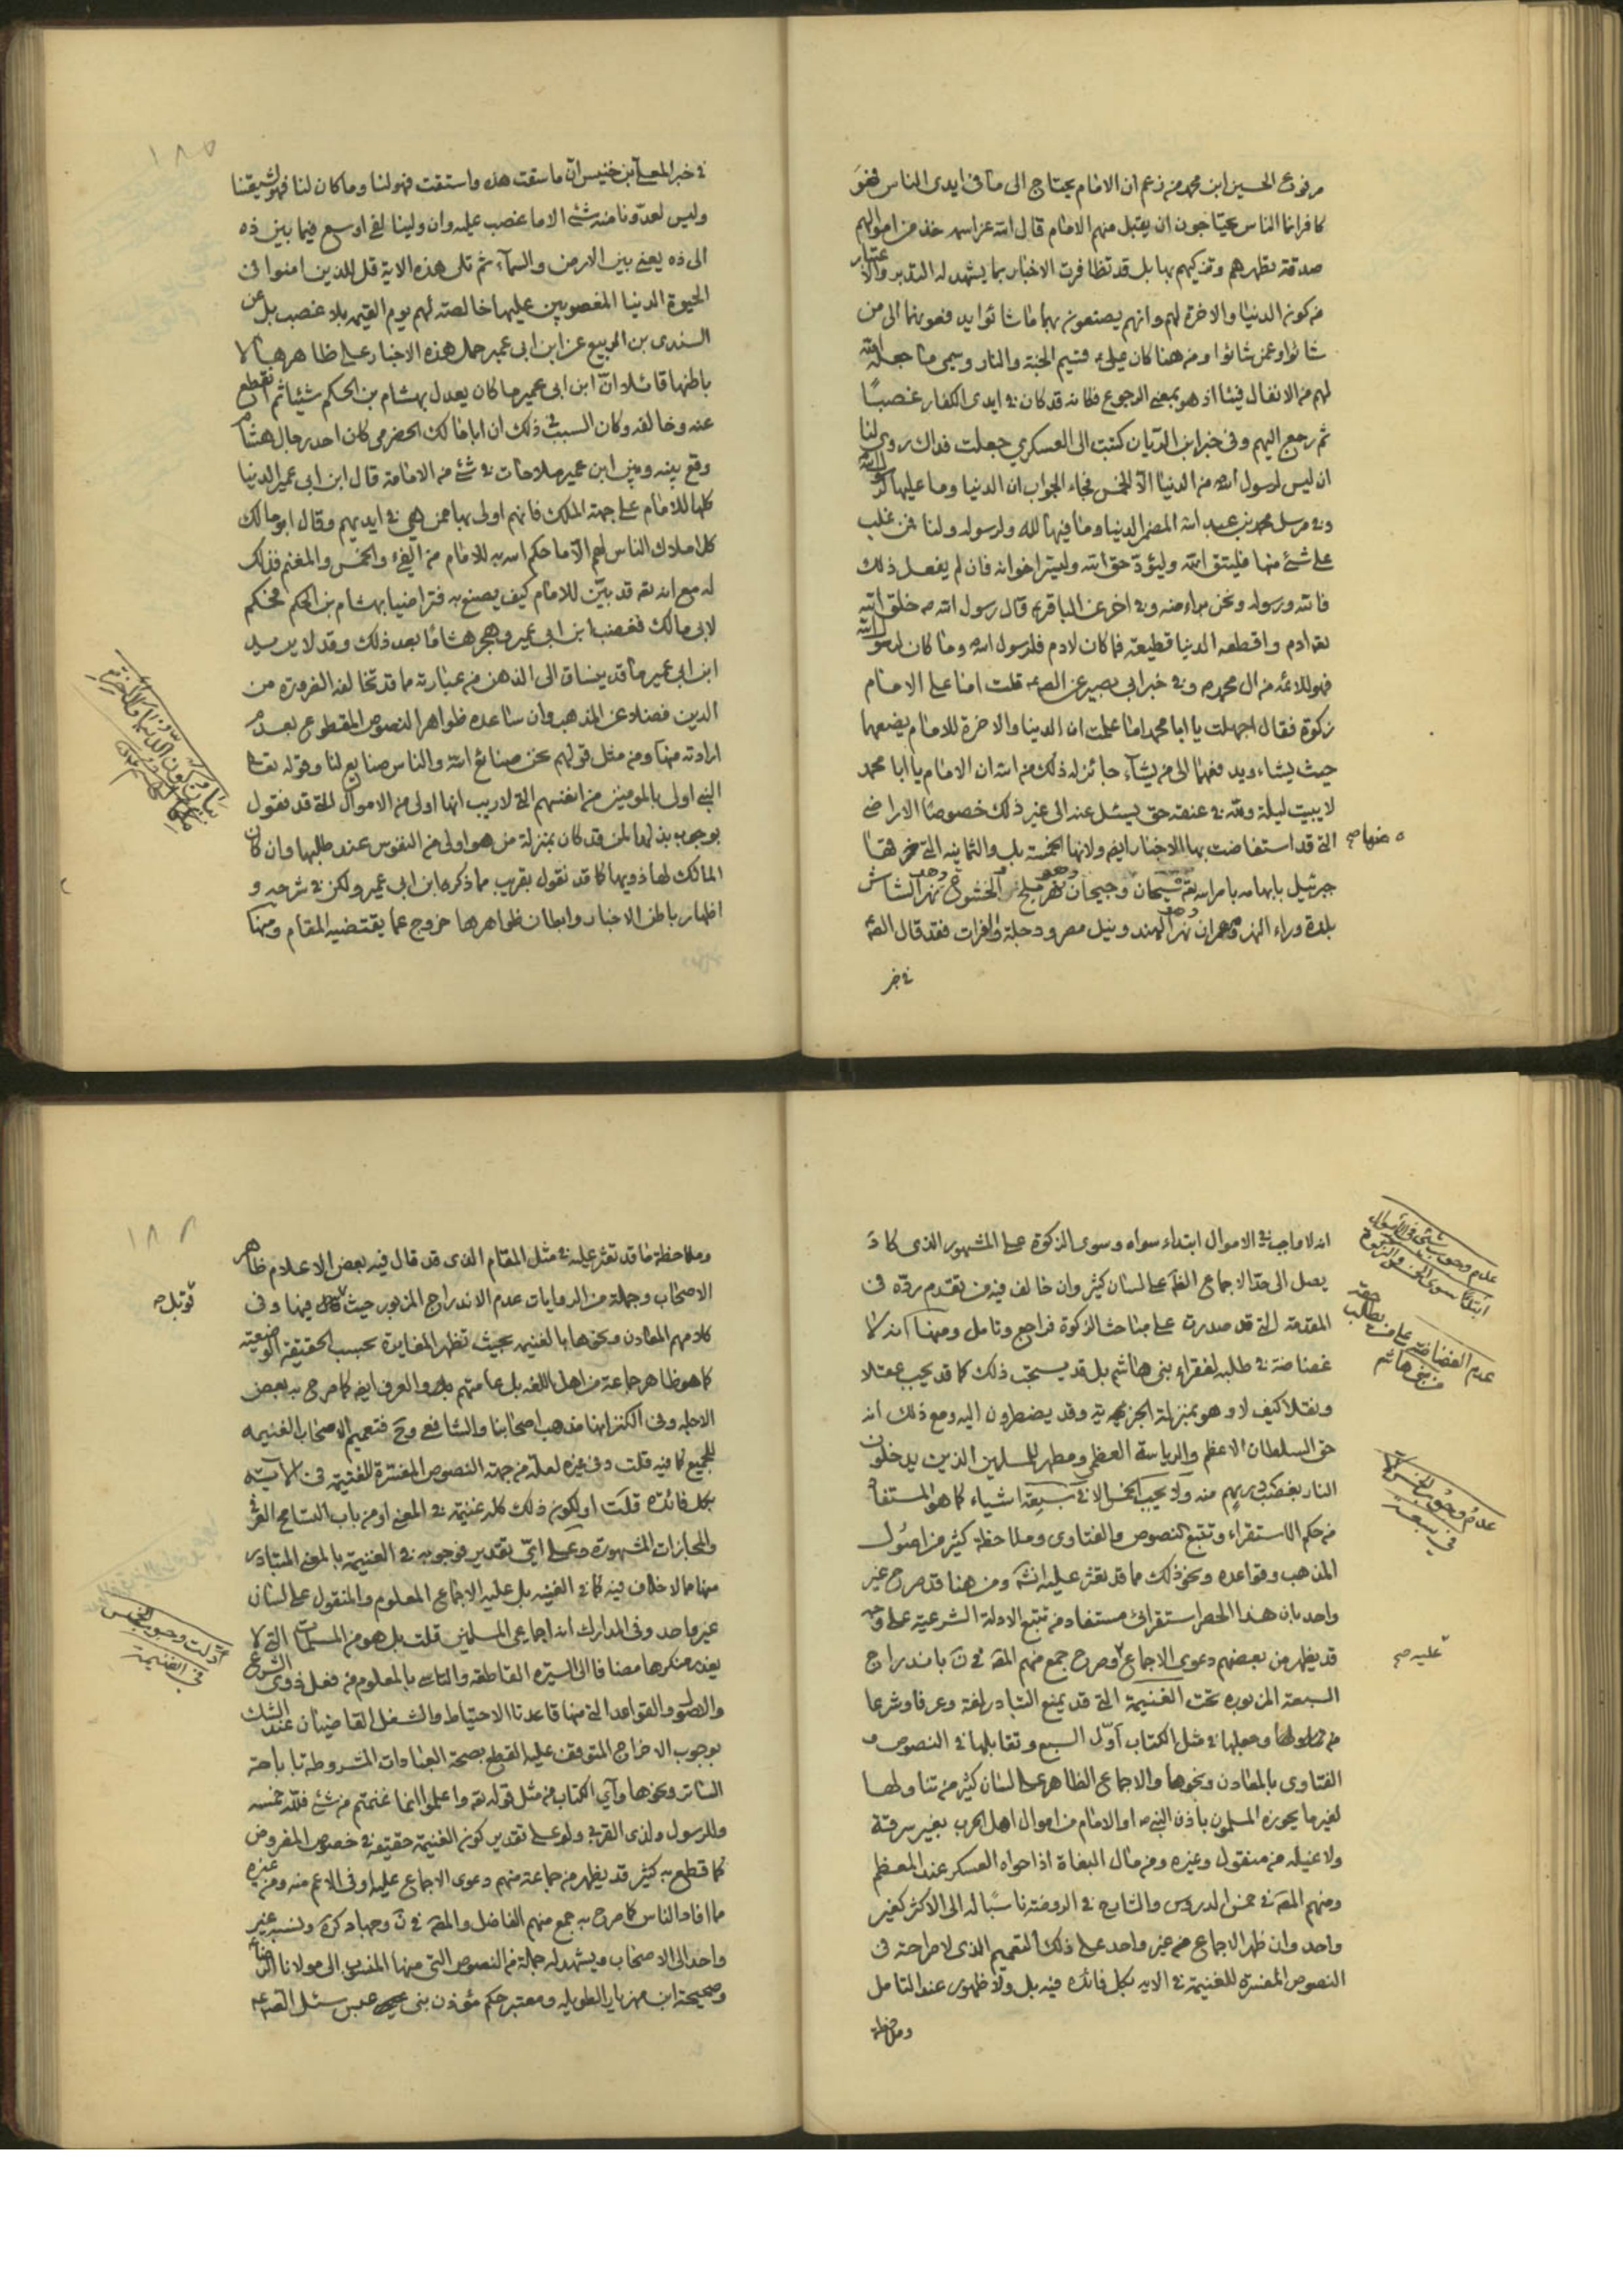 مرفوع الحسين ابن محمد من زعم ان الامام يحتاج الى ما فى ايدى الناس فهو
كافر انما الناس يحتاجون ان يقبل منهم الامام قال الله عز اسمه خذ من اموالهم
صدقة تطهرهم وتزكيهم بها بل قد تظافرت الاخبار بما يشهد له التدبر والاعتبار
من كون الدنيا والاخرة لهم وانهم يصنعون بهما ما شاؤا يدفعونهما الى من
شاؤا وعمن شاؤا ومن هنا كان على قسيم الجنة والنار وسمى ما جعله الله
لهم من الانفال فيئا اذ هو بمعنى الرجوع فكانه قد كان فى ايدى الكفار غصبًا
ثم رجع اليهم وفى خبر ابن الريان كتبت الى العسكري جعلت فداك روى لنا
ان ليس لرسول الله من الدنيا الا الخمس فجاء الجواب ان الدنيا وما عليها لرسول الله
وفى مرسل محمد بن عبد الله المضمر الدنيا وما فيها لله ولرسوله ولنا فمن غلب
على شئ منها فليتق الله وليؤد حق الله وليبر اخوانه فان لم يفعل ذلك
فالله ورسوله ونحن براء منه وفى اخر عن الباقر قال رسول الله ص خلق الله
تعه ادم واقطعه الدنيا قطيعة فما كان لادم فلرسول الله وما كان لرسول الله
فهو للائمة من ال محمد ص وفى خبر ابى بصير عن الص قلت اما على الامام
زكوة فقال اجهلت يا ابا محمد اما علمت ان الدنيا والاخرة للامام يضعهما
حيث يشاء ويدفعهما الى من يشآء جائز له ذلك من الله ان الامام يا ابا محمد
لا يبيت ليلة ولله فى عنقه حق يسئل عنه الى غير ذلك خصوصًا الاراضى
التى قد استفاضت بها الاخبار ايض ولانها الخمسة بل والثمانية التى خرقها
منها صح
جبرئيل بابهامه بامر الله تعه سيحان وجيحان وهو نهر بلخ والخشوع وهو نهر الشاش
بلدة وراء النهر ومهران وهو نهر الهند ونيل مصر ودجلة والفرات فقد قال الص
فى خبر
فى خبر المعلى بن خنيس ان ما سقت هذه واستقت فهو لنا وما كان لنا فهو لشيعتنا
وليس لعدونا منه شئ الا ما غصب عليه وان ولينا لفى اوسع فيما بين ذه
الى ذه يعنى بين الارض والسمآء ثم تلى هذه الاية قل للذين امنوا فى
الحيوة الدنيا المغصوبين عليها خالصة لهم يوم القيمه بلا غصب بل عن
السندى بن الربيع عن ابن ابى عمير حمل هذه الاخبار على ظاهرها لا
باطنها قائلا ان ابن ابى عمير ما كان يعدل بهشام بن الحكم شيئا ثم انقطع
عنه وخالفه وكان السبب فى ذلك ان ابا مالك الحضرمى كان احد رجال هشام
وقع بينه وبين ابن عمير ملاحات فى شئ من الامامة قال ابن ابى عمير الدنيا
كلها للامام على جهة الملك فانهم اولى بها ممن هى فى ايديهم وقال ابو مالك
كل املاك الناس لهم الا ما حكم الله به للامام من الفئ والخمس والمغنم فذلك
له مع انه تعه قد بين للامام كيف يصنع به فتراضيا بهشام بن الحكم فحكم
لابى مالك فغضب ابن ابى عمير وهجر هشامًا بعد ذلك وقد لا يريد
ابن ابى عمير ما قد ينساق الى الذهن من عبارته مما قد تخالفه الضرورة من
الدين فضلا عن المذهب وان ساعده ظواهر النصوص المقطوع بعدم
ارادته منها ومن مثل قولهم نحن صنائع الله والناس صنايع لنا وقوله تعه
النبى اولى بالمومنين من انفسهم التى لا ريب انها اولى من الاموال التى قد نقول
بوجوب بذلها لمن قد كان بمنزلة من هو اولى من النفوس عند طلبها وان كان
المالك لها ذويها كما قد نقول بقرب مما ذكره ابن ابى عمير ولكن فى شرحه و
اظهار باطن الاخبار وابطان ظواهرها خروج عما يقتضيه المقام ومنها
انه لا واجب فى الاموال ابتداء سواه وسوى الزكوة على المشهور الذى كاد
يصل الى حد الاجماع الظ على لسان كثير وان خالف فيه من تقدم رده فى
المقدمة التى قد صدرت على مباحث الزكوة فراجع وتامل ومنها انه لا
غضاضة فى طلبه لفقراء بنى هاشم بل قد يستحب ذلك كما قد يجب عقلا
ونقلا كيف لا وهو بمنزلة الجزية وقد يضطرون اليه ومع ذلك انه
حق السلطان الاعظم والرياسة العظمى ومطهر للمسلمين الذين يدخلون
النار بغضب ربهم منه ولا يجب الخمس الا فى سبعة اشياء كما هو المستفاد
من حكم الاستقراء وتتبع النصوص والفتاوى وملاحظة كثير من اصول
المذهب وقواعده ونحو ذلك مما قد تعثر عليه انشاء ومن هنا قد صرح غير
واحد بان هذا الحصر استقرائى مستفاد من تتبع الادلة الشرعية على وجه
قد يظهر من بعضهم دعوى الاجماع وصرح جمع منهم المص فى ن باندراج
عليه صح
السبعة المزبوره تحت الغنيمة التى قد يمنع التبادر لغة وعرفا وشرعا
من شمولها وجعلها فى مثل الكتاب اول السبع وتقابلها فى النصوص و
الفتاوى بالمعادن ونحوها والاجماع الظاهر على لسان كثير من تناولها
لغير ما يحوزه المسلمون باذن النبى ص او الامام من اموال اهل الحرب بغير سرقة
ولا غيلة من منقول وغيره ومن مال البغاة اذا حواه العسكر عند المعظم
ومنهم المص فى خمس الدروس والشارح فى الروضة ناسبًا له الى الاكثر كغير
واحد وان ظهر الاجماع من غير واحد على ذلك التعميم الذى لا صراحة فى
النصوص المفسرة للغنيمة فى الايه بكل فائده فيه بل ولا ظهور عند التامل
وملاحظة
عدم وجوب شئ فى الاموال ابتداء سوى الخمس والزكوة
عدم الغضاضة على من يطالب حقه من بنى هاشم
عدم وجوب الخمس الا فى سبعة
وملاحظة ما قد تعثر عليه فى مثل المقام الذى قد قال فيه بعض الاعلام ظاهر
الاصحاب وجملة من الروايات عدم الاندراج المزبور حيث فيها وفى
قوبل صح
كلامهم المعادن ونحوها بالغنيمه بحيث تظهر المغايرة بحسب الحقيقة الوضعية
كما هو ظاهر جماعة من اهل اللغه بل عامتهم بل والعرف ايض كما صرح به بعض
الاجله وفى الكنز انها مذهب اصحابنا والشافعى وح فتعميم الاصحاب الغنيمه
للجميع كما فيه قلت وفى غيره لعله من جهة النصوص المفسرة للغنيمة فى الآية
بكل فائده قلت او لكون ذلك كله غنيمة فى المعنى او من باب التسامح العرفى
والمجازات المشهورة وعلى اى تقدير فوجوبه فى الغنيمة بالمعنى المتبادر
منها مما لا خلاف فيه كما فى الغنيه بل عليه الاجماع المعلوم والمنقول على لسان
غير واحد وفى المدارك انه اجماعى المسلمين قلت بل هو من المسلمات التى لا
يعذر منكرها مضافا الى السيره القاطعه والتاسى بالمعلوم من فعل ذوى الشرع
والاصول والقواعد التى منها قاعدتا الاحتياط والشغل القاضيتان عند الشك
بوجوب الاخراج المتوقف عليه القطع بصحة العبادات المشروطة باباحة
الساتر ونحوها وآي الكتاب من مثل قوله تعه واعلموا انما غنمتم من شئ فلله خمسه
وللرسول ولذى القربى ولو على تقدير كون الغنيمة حقيقة فى خصوص المفروض
كما قطع به كثير قد يظهر من جماعة منهم دعوى الاجماع عليه او فى الاعم منه ومن غيره
مما افاد الناس كما صرح به جمع منهم الفاضل والمص فى ن وجهاد كره ونسبه غير
واحد الى الاصحاب ويشهد له جملة من النصوص التى منها المنسوب الى مولانا الرضا
وصحيحة ابن مهزيار الطويله ومعتبر حكم مؤذن بنى عبس سئل الص عه
ادلة وجوب الخمس فى الغنيمة